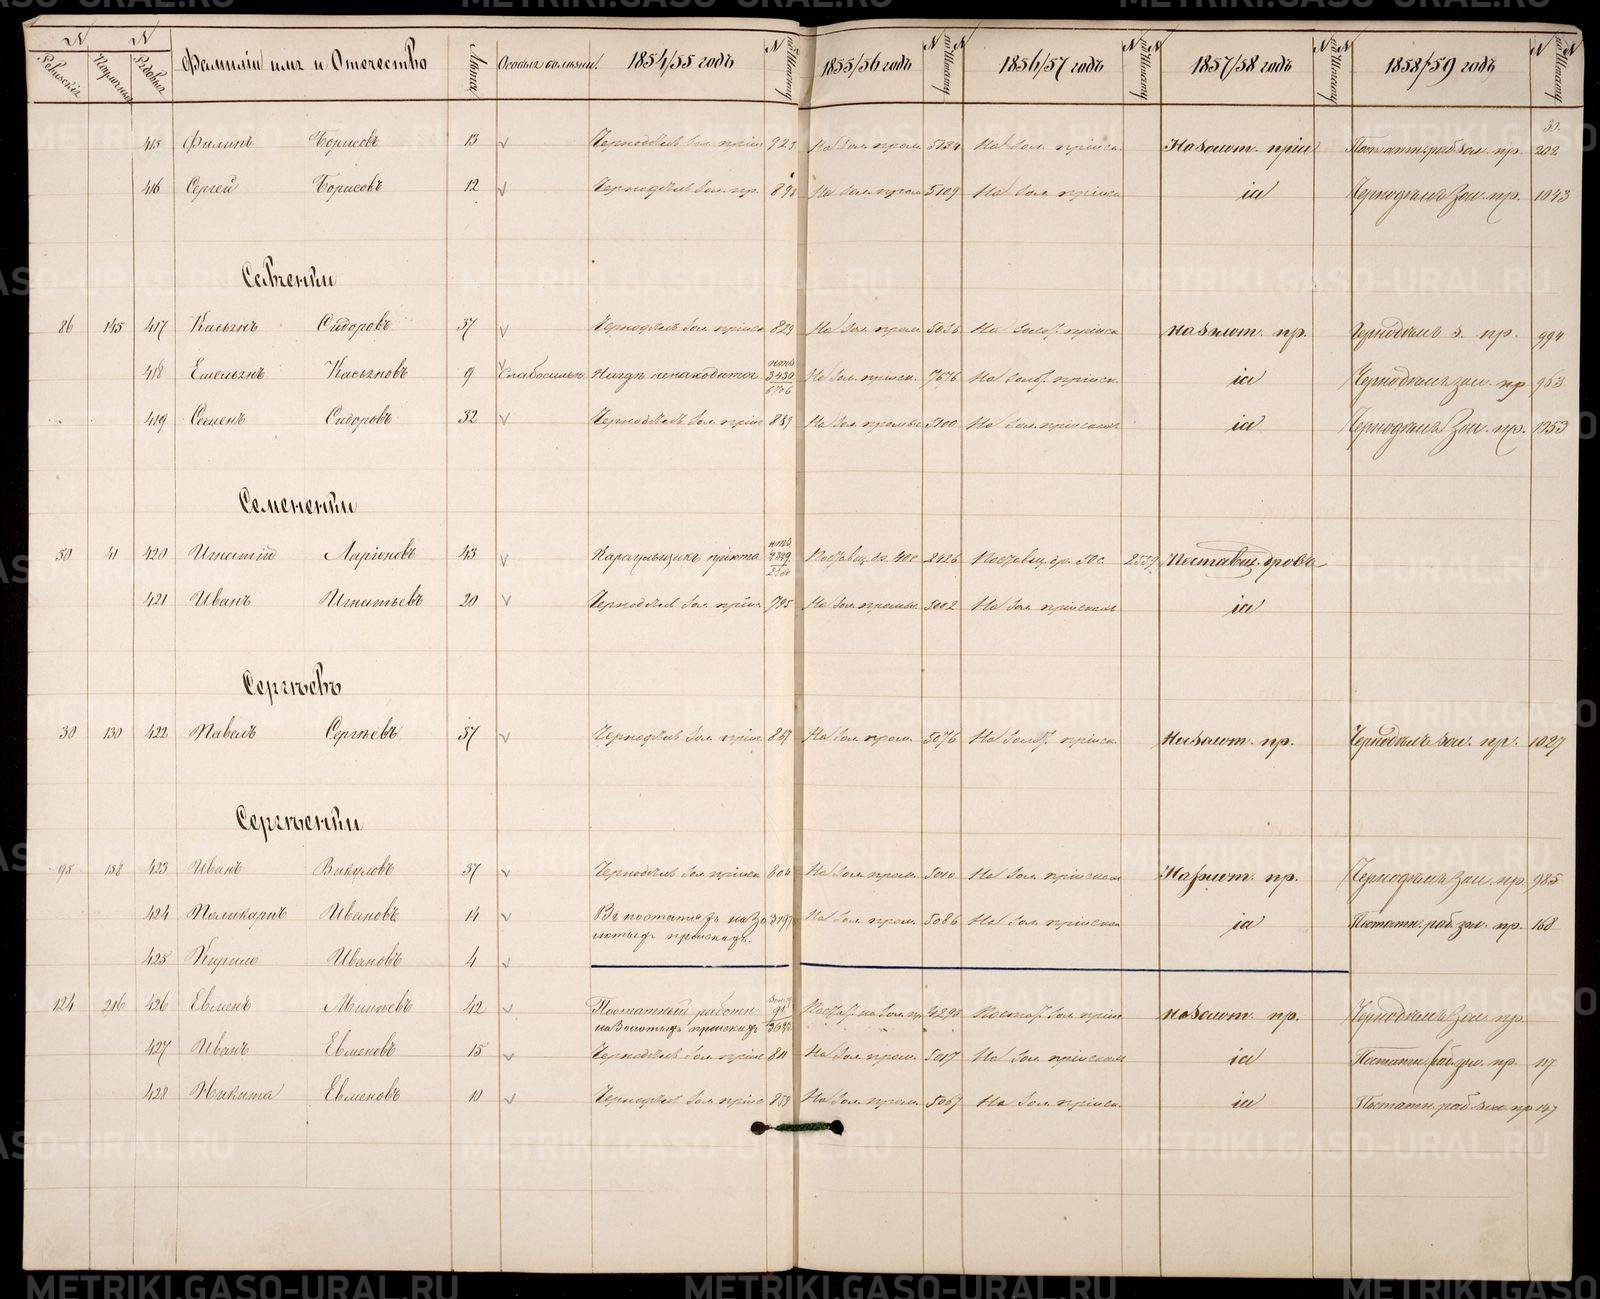 № Ревизскiя № Поулочныя № Рядовыя Фамилiи имя и Отечество Лѣта Особыя болѣзни 1854/55 годъ № по Штату 1855/56 годъ № по Штату 1856/57 годъ № по Штату 1857/58 годъ № по Штату 1858/59 годъ № по Штату
415 Филипъ Борисовъ 13 Чернодѣлъ Зол. прiис 923 На Зол. пром. 5134 На Зол. прiиск. На золот. прiи Постатн. раб. зол. пр. 202
416 Сергей Борисовъ 12 Чернодѣлъ Зол. пр. 898 На Зол. пром. 5109 На Зол. прiиск. iа Чернодѣлъ Зол. пр. 1043
86 145 417 Касьянъ Сидоровъ 37 Чернодѣлъ Зол. прiиск 829 На Зол. пром. 5036 На Золот. прiиск. на золот. пр. Чернодѣлъ з. пр. 994
418 Емельянъ Касьяновъ 9 Слабосильн. Нигдѣ ненаходится 3430 На Зол. прiиск. 7676 На Золот. прiиск. iа Чернодѣлъ зол. пр 963
419 Семенъ Сидоровъ 32 Чернодѣлъ Зол. прiис 889 На Зол. промыс 5100 На Зол. прiискахъ iа Чернодѣлъ Зол. пр. 1053
Семененки
50 41 420 Игнатiй Ларiоновъ 43 Караульщикъ 2426 Поставщ. др. 50 с. 2557 Поставщ. дровъ
421 Иванъ Игнатьевъ 20 Чернодѣлъ Зол. прiис 795 На Зол. промыс. 5002 На Зол. прiискахъ iа
Сергѣевъ
30 130 422 Павелъ Сергѣевъ 37 Чернодѣлъ Зол. прiис 867 На Зол. пром. 5076 На Золот. прiиск. На золот. пр. Чернодѣлъ зол. пр. 1027
Сергѣенки
195 158 423 Иванъ Викуловъ 37 Чернодѣлъ Зол. прiиск 804 На Зол. пром. 5010 На Зол. прiискахъ На золот. пр. Чернодѣлъ Зол. пр. 985
424 Поликарпъ Ивановъ 14 На Зол. пром. 5086 На Зол. прiискахъ iа Постатн. раб. зол. пр. 168
425 Кирило Ивановъ 4
124 216 426 Евменъ 42 Постатный работн. 4298 Постат. Зол. прiис на золот. пр. Чернодѣлъ Зол. пр.
на Золотыхъ прiискахъ
427 Иванъ Евменовъ 15 Чернодѣлъ Зол. прiис 811 На Зол. пром. 5017 На Зол. прiискахъ iа Постатн. раб. зол. пр. 117
428 Никита Евменовъ 10 Чернодѣлъ Зол. прiис 859 На Зол. пром. 5067 На Зол. прiиск. iа Постатн. раб. зол. пр 147
METRIKI.GASO-URAL.RU